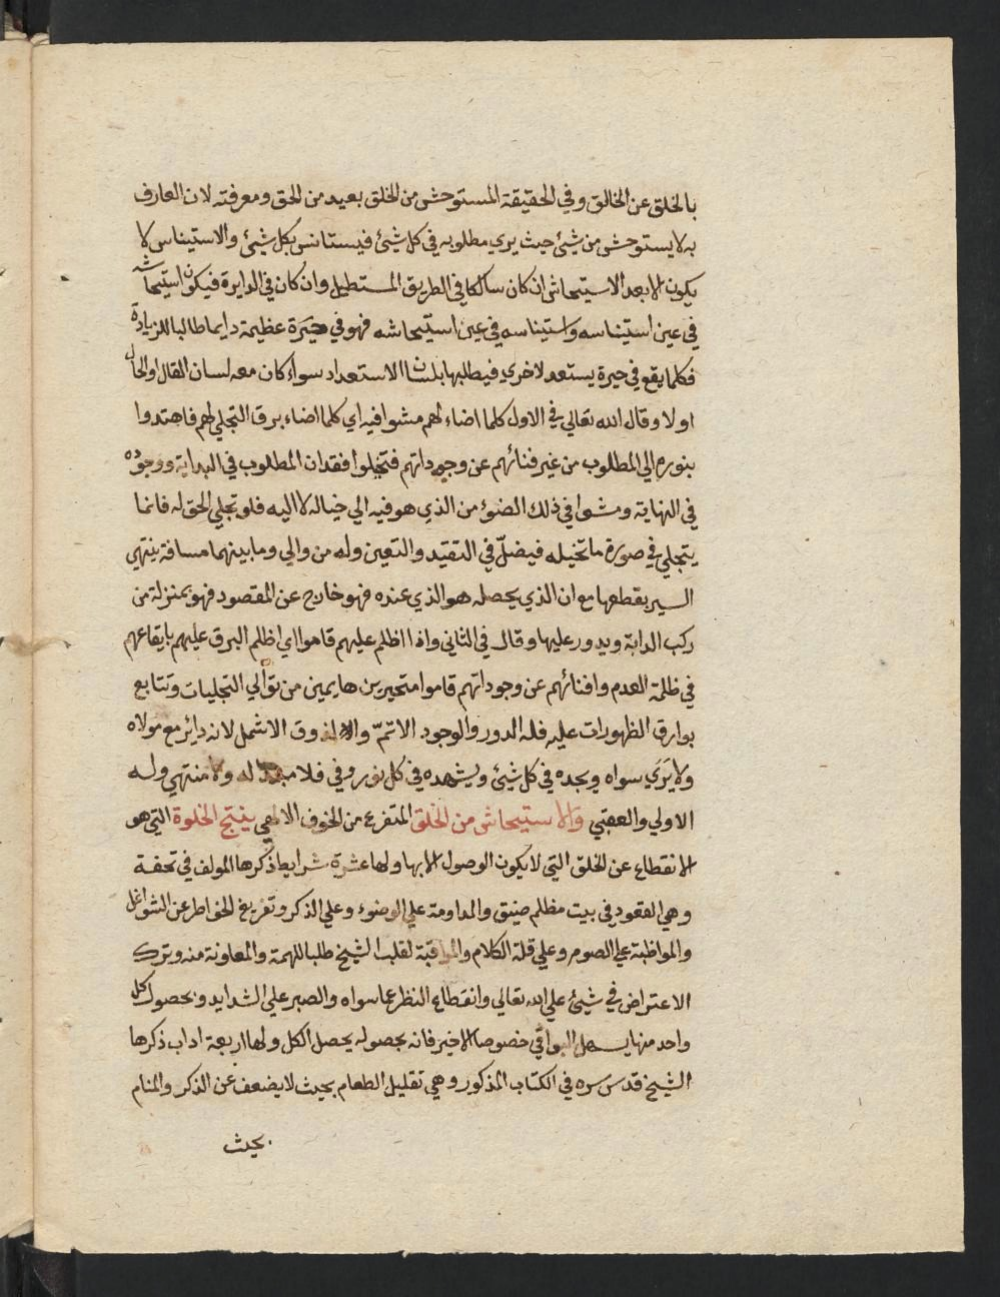 بالخلق عن الخالق وفي الحقيقة المستوحش من الخلق بعيد من الحق ومعرفته لان العارف
به لا يستوحش من شيئ حيث يري مطلوبه في كل شيئ فيستانس بكل شيئ والاستيناس لا
يكون الا بعد الاستيحاش ان كان سالكا في الطريق المستطيل وان كان في الدايرة فيكون استيحاشه
في عين استيناسه واستيناسه في عين استيحاشه فهو في حيرة عظيمة دايما طالبا للزيادة
فكلما يقع في حيرة يستعد لاخري فيطلبها بلسان الاستعداد سواء كان معه لسان القال او الحال
او لا وقال الله تعالي في الاول كلما اضاء لهم مشوا فيه اي كلما اضاء برق التجلي لهم فاهتدوا
بنوره الي المطلوب من غير فنائهم عن وجوداتهم فتخيلوا فقدان المطلوب في البداية ووجوده
في النهاية ومشوا في ذلك الضوء من الذي هو فيه الي خياله لا اليه فلو تجلي الحق له فانما
يتجلي في صورة ما تخيله فيضلّ في التقيد والتعين وله من والي وما بينهما مسافة ينتهي
السير بقطعها مع ان الذي يحصله هو الذي عنده فهو خارج عن المقصود فهو بمنزلة من
ركب الدابة ويدور عليها وقال في الثاني واذا اظلم عليهم قاموا اي اظلم البرق عليهم بايقاعهم
في ظلمة العدم وافنائهم عن وجوداتهم قاموا متحيرين هايمين من توالي التجليات وتتابع
بوارق الظهورات عليه فله الدور والوجود الاتمّ والذوق الاشمل لانه داير مع مولاه
ولا يري سواه ويجده في كل شيئ ويشهده في كل نور وفي فلا مبدا له ولا منتهي وله
الاولي والعقبي والاستيحاش من الخلق المتفرع من الخوف الالهي ينتج الخلوة التي هو
الانقطاع عن الخلق التي لا يكون الوصول الا بها ولها عشرة شرايط ذكرها المولف في تحفة
وهي القعود في بيت مظلم ضيق والمداومة علي الوضوء وعلي الذكر وتفريغ الخواطر عن الشواغل
والمواظبة علي الصوم وعلي قلة الكلام والمراقبة لقلب الشيخ طلبا للهمة والمعاونة منه وترك
الاعتراض في شيئ علي الله تعالي وانقطاع النظر عما سواه والصبر علي الشدايد وبحصول كل
واحد منها يسهل البواقي خصوصا الاخير فانه بحصوله يحصل الكل ولها اربعة اداب ذكرها
الشيخ قدس سره في الكتاب المذكور وهي تقليل الطعام بحيث لا يضعف عن الذكر والمنام
بحيث